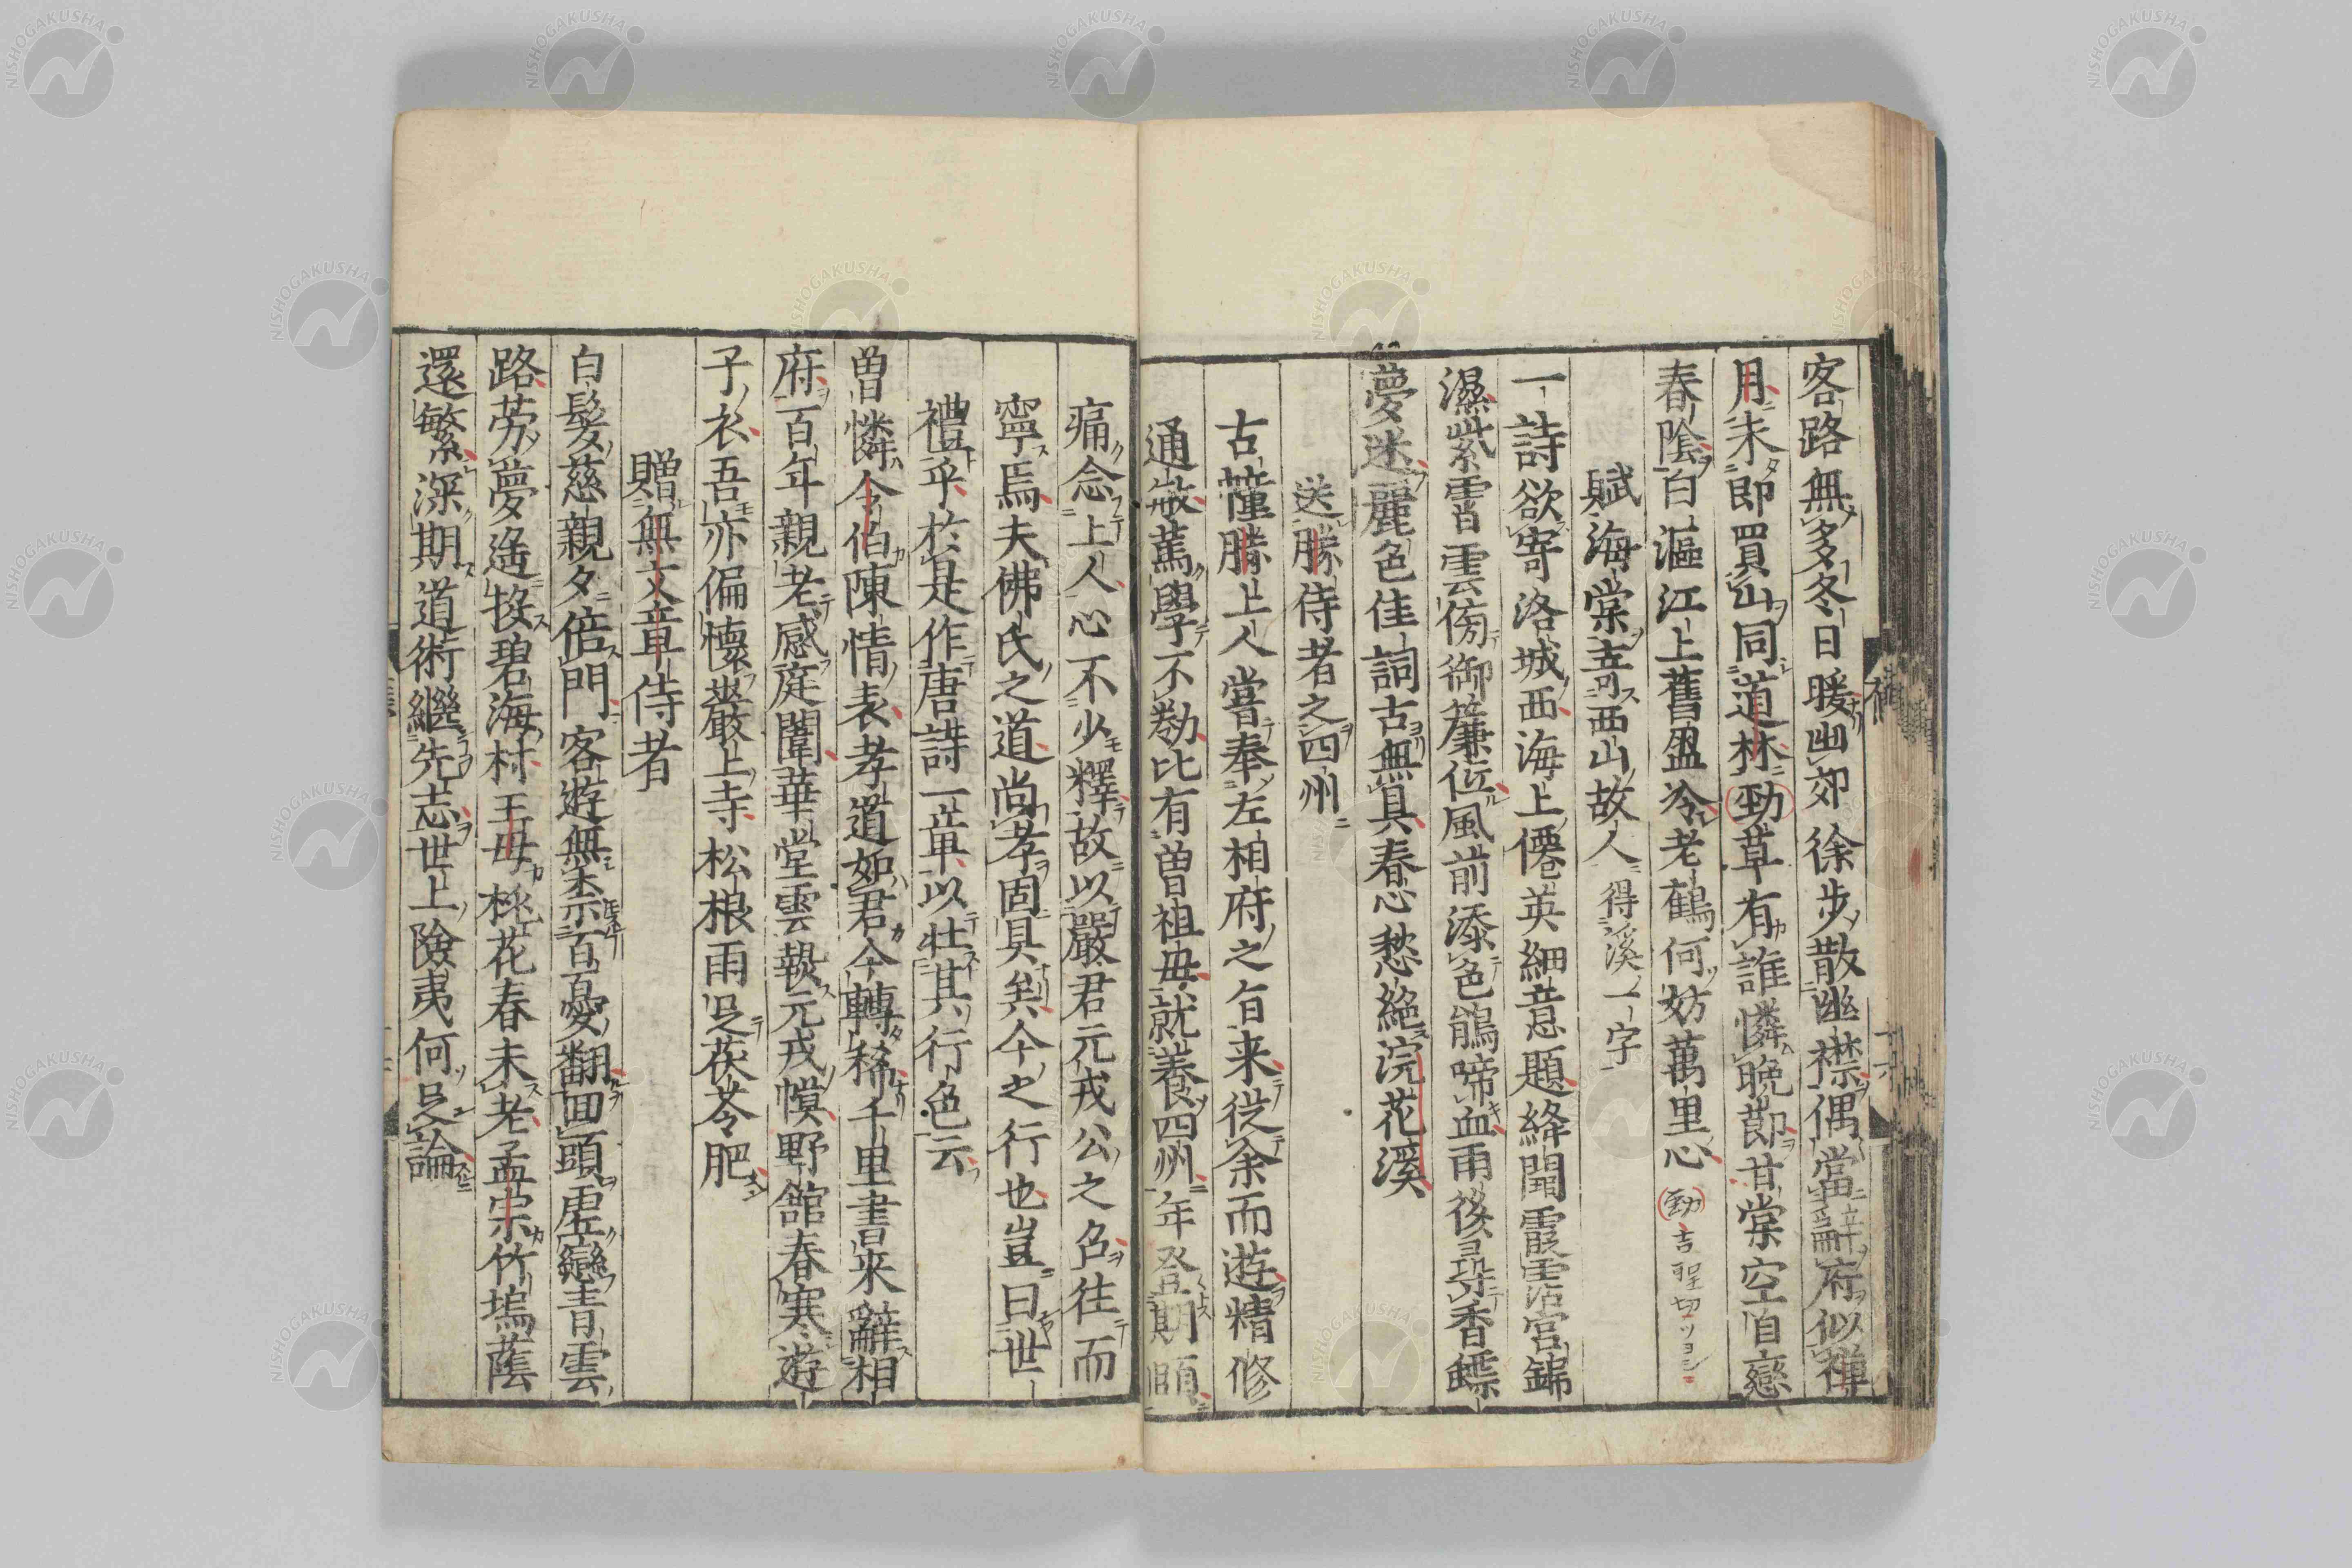 客路無多冬日暖幽郊徐步散幽襟偶當辭府似禅
月未即買山同道林勁草有誰憐晩節甘棠空自戀
春陰白漚江上舊盟冷老鶴何妨萬里心 勁吉聖切ツヨシ
賦海棠寄西山故人 得溪一字
一詩欲寄洛城西海上僊英細意題絳闕霞霑宮錦
濕紫霄雲傍御簾低風前添色鵑啼血雨後尋香
夢迷麗色佳詞古無具春心愁絶浣花溪
送勝侍者之四州
古幢勝上人嘗奉左相府之旨来從余而遊精修
通敏萬學不勌比有曽祖母就養四州年登期頤
痛念上人心不少釋故以嚴君元戎公之命往而
寧焉夫佛氏之道尚孝固具矣今之行也豈曰世
禮乎於是作唐詩一章以壮其行色云
曽憐令伯陳情表孝道如君今轉稀千里書来辭相
府百年親老感庭闈華堂雲報元戎幙野館春寒遊
子衣吾亦偏懐巌上寺松根雨足茯苓肥
贈無文章侍者
白髮慈親夕倚門客遊無柰百憂翻回頭虚戀青雲
路労夢遙投碧海村王母桃花春未老孟宗竹塢蔭
還繁深期道術繼先志世上險夷何足論
補
十六
NISHOGAKUSHA